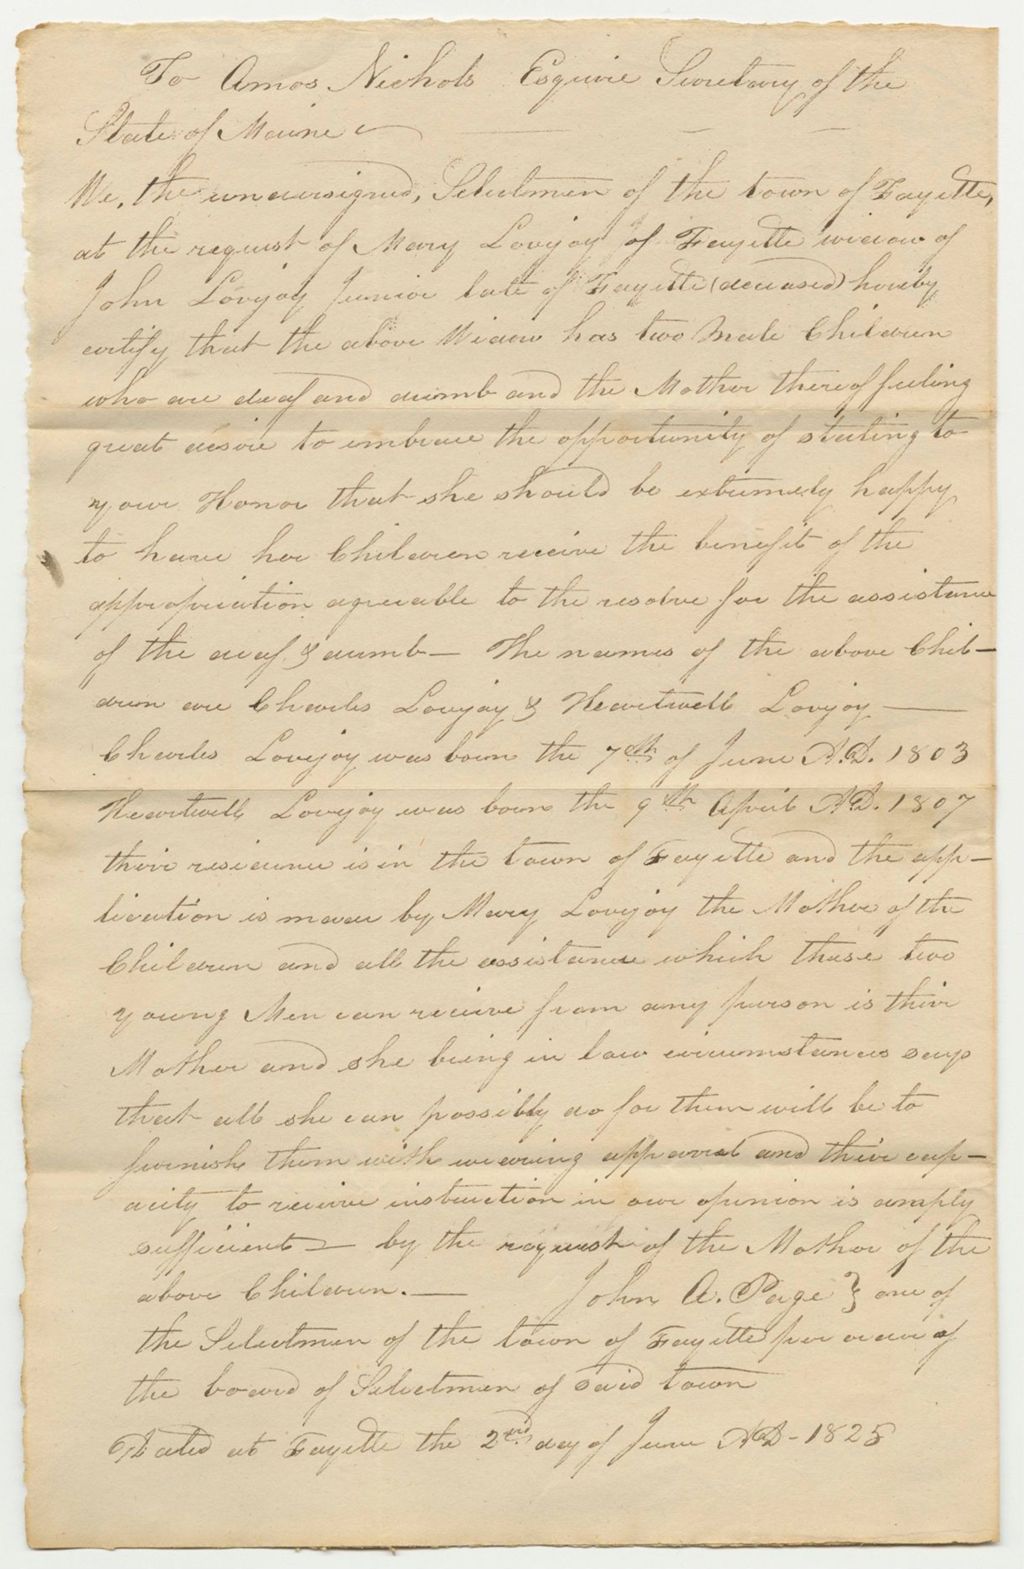 To Amos Nichols Esquire Secretary of the
State of Maine
We, the undersigned, Selectmen of the town of Fayette,
at the request of Mary Lovejoy of Fayette widow of
John Lovejoy Junior late of Fayette (deceased) hereby
certify that the above Widow has two Male Children
who are deaf and dumb and the Mother thereof feeling
great desire to embrace the opportunity of stating to
your Honor that she should be extremely happy
to have her Children receive the benefit of the
appropriation agreeable to the resolve for the assistance
of the deaf & dumb — The names of the above Chil-
dren are Charles Lovejoy & Heartwell Lovejoy —
Charles Lovejoy was born the 7th of June A.D. 1803
Heartwell Lovejoy was born the 9th April AD. 1807
their residence is in the town of Fayette and the app-
lication is made by Mary Lovejoy the Mother of the
Children and all the assistance which these two
young Men can receive from any person is their
Mother and she being in low circumstances says
that all she can possibly do for them will be to
furnish them with wearing apparral and their cap-
acity to receive instruction in our opinion is amply
sufficient — by the request of the Mother of the
above Children. — John A. Page } one of
the Selectmen of the town of Fayette per order of
the board of Selectmen of said town
Dated at Fayette the 2nd day of June AD - 1825